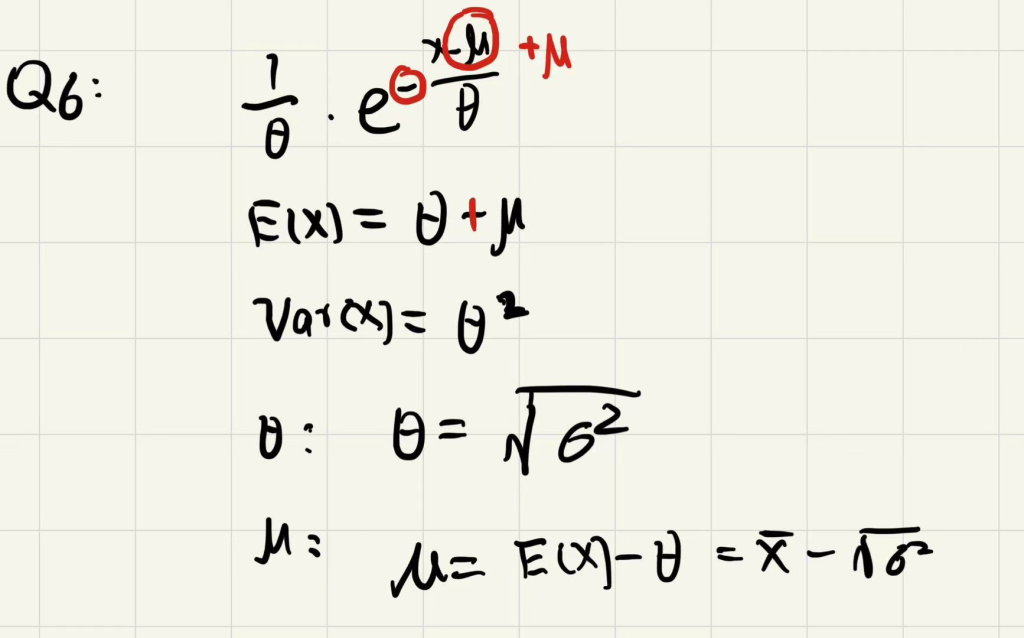 Q6: 1/θ · e^(-(x-μ)/θ) +μ
E(X) = θ + μ
Var(X) = θ²
θ: θ = √σ²
μ: μ = E(X) - θ = x̄ - √σ²